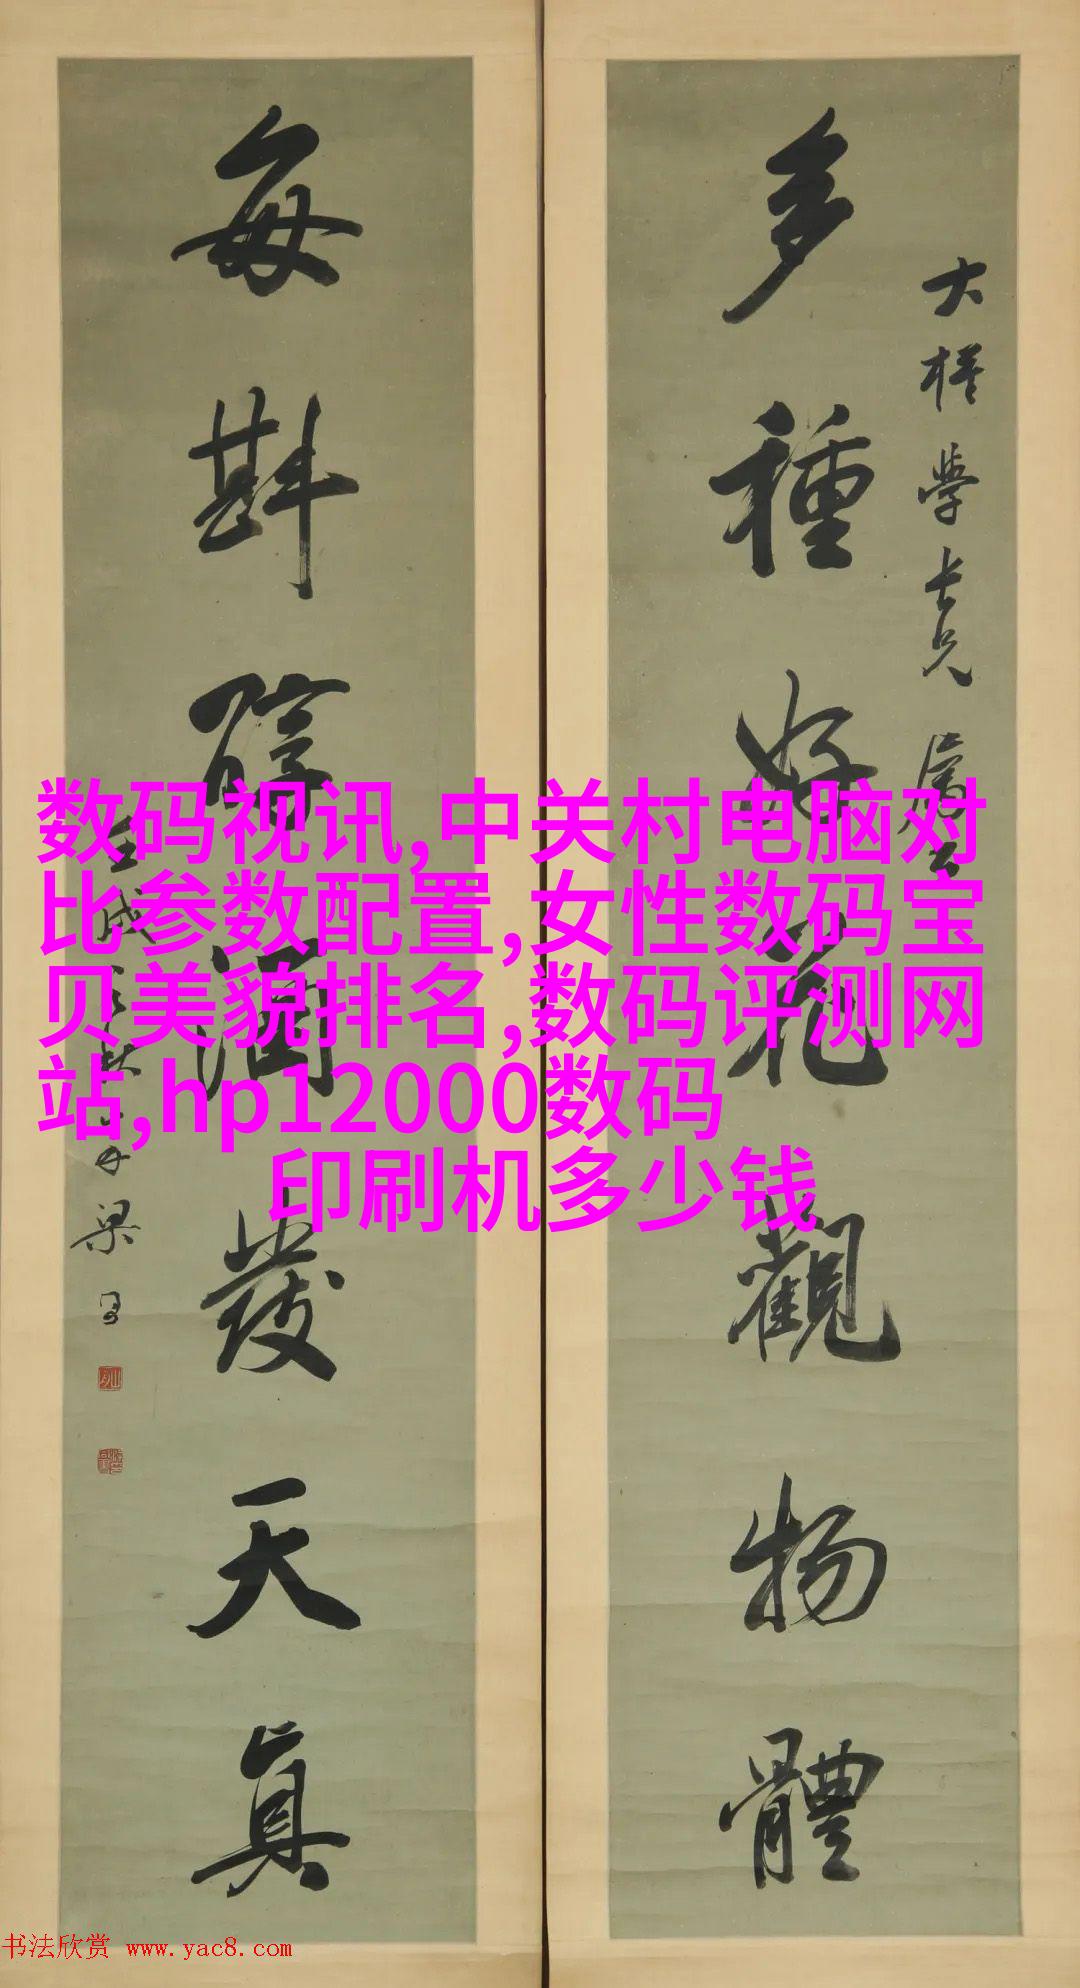 多種好花觀物體
大楳學長兄屬
每斟醇酒發天真
數码视讯,中关村电脑对
比参数配置,女性数码宝
贝美貌排名,数码评测网
站,hp12000数码
印刷机多少钱
书法欣赏 www.yac8.com